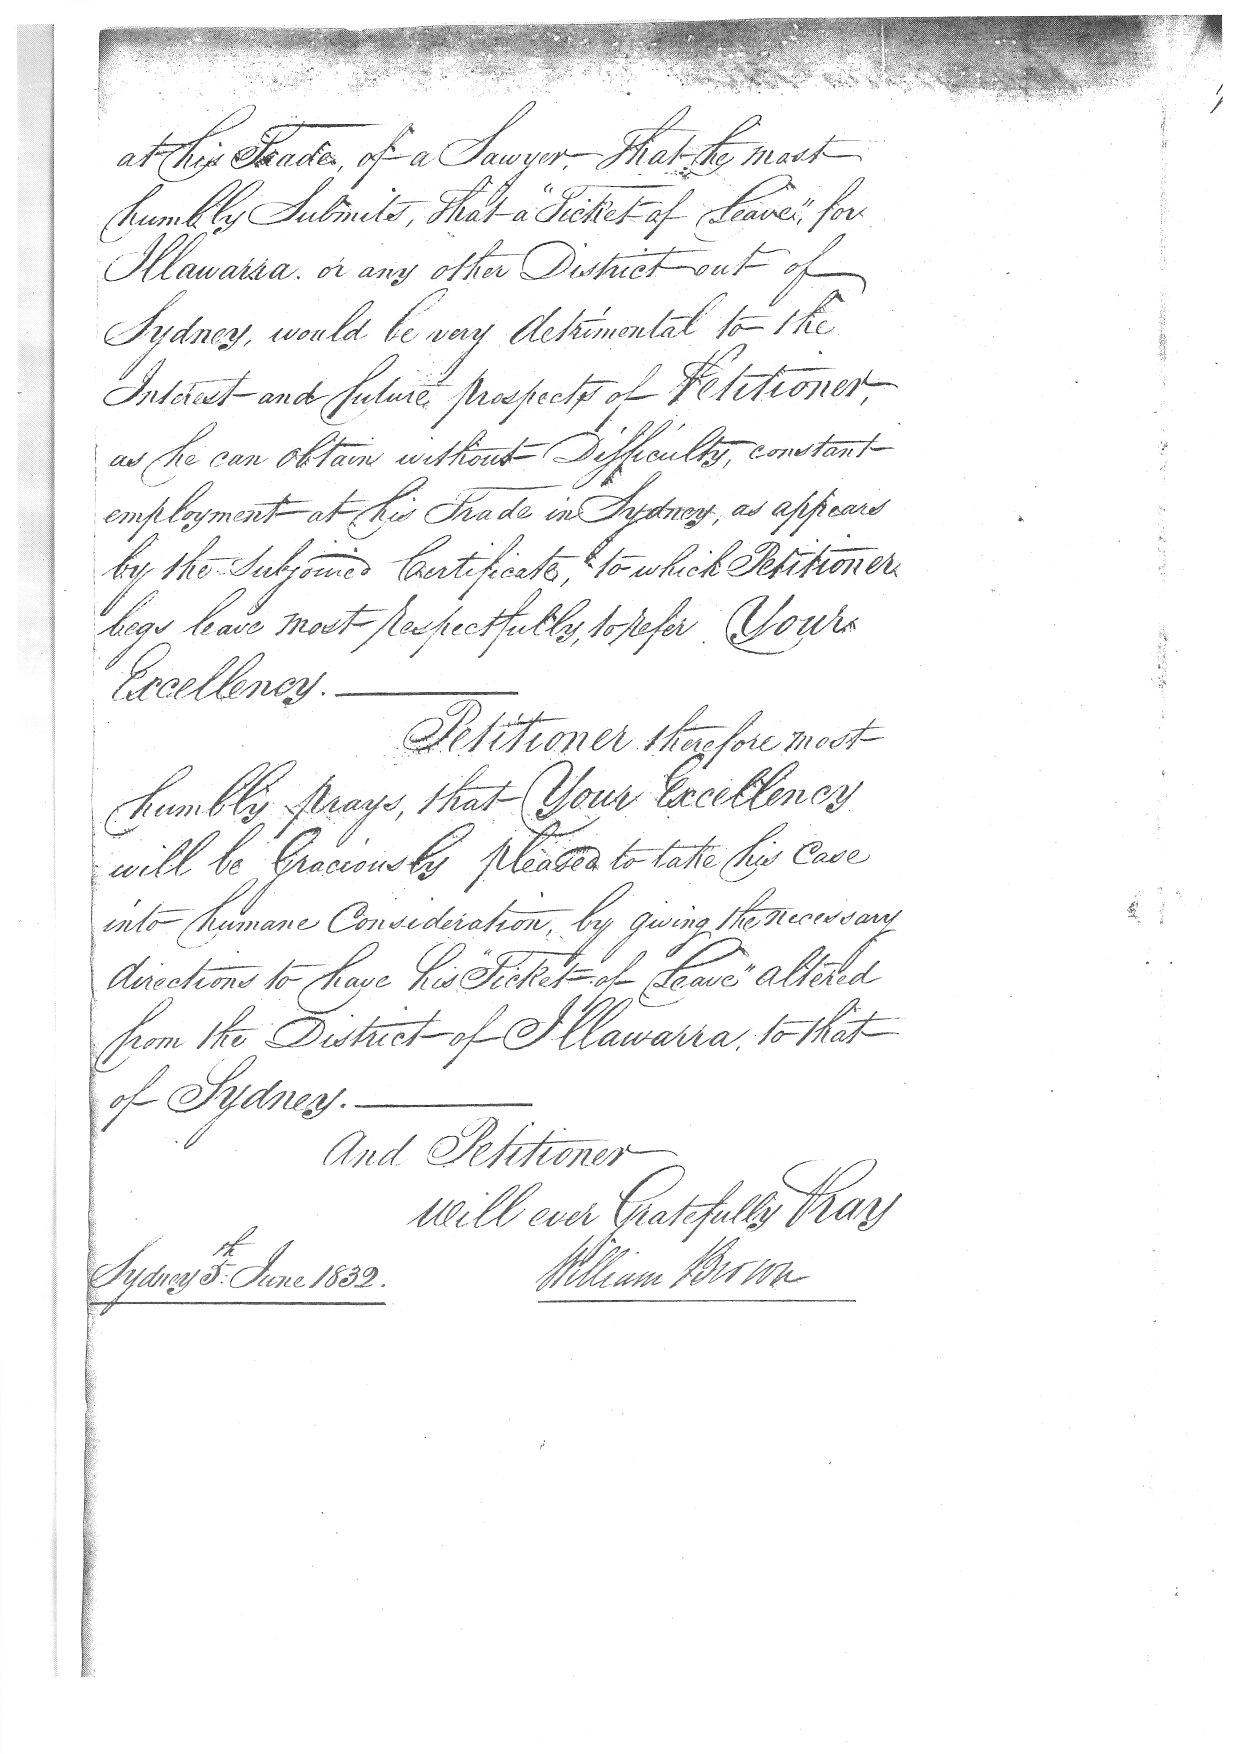 at his Trade, of a Sawyer, That he most
humbly Submits, That a "Ticket of Leave", for
Illawarra. or any other District out of
Sydney, would be very detrimental to the
Interest and future prospects of Petitioner,
as he can obtain without Difficulty, constant
employment at his Trade in Sydney, as appears
by the Subjoined Certificate, to which Petitioner
begs leave most respectfully, to refer Your
Excellency.
Petitioner therefore most
humbly prays, that Your Excellency
will be Graciously pleased to take his Case
into humane Consideration, by giving the necessary
directions to have his "Ticket of Leave" altered
from the District of Illawarra, to that
of Sydney.
And Petitioner
will ever Gratefully Pray
Sydney 5th June 1832.
William Brown